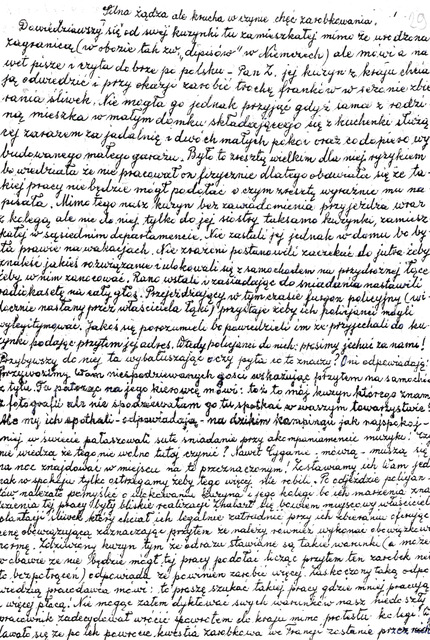 Silna żądza ale krucha w czynie chęć zarobkowania.
29
Dowiedziawszy się od swej kuzynki tu zamieszkałej mimo że urodzona
zagranicą (w obozie tak zw. „dipisów" w Niemczech) ale mówi a na
wet pisze i czyta dobrze po polsku – Pan Z. jej kuzyn z kraju chciał
ją odwiedzić i przy okazji zarobić trochę franków w sezonie zbie
rania śliwek. Nie mogła go jednak przyjąć gdyż sama z rodzi
ną mieszka w małym domku składającego się z kuchenki służą
cej zarazem za jadalnię i dwóch małych pokoi oraz co dopiero wy
budowanego małego garażu. Było to zresztą wielkim dla niej ryzykiem
bo wiedziała że nie pracował on fizycznie dlatego obawiała się że ta-
kiej pracy nie będzie mógł podołać o czym zresztą wyraźnie mu na
pisała. Mimo tego nasz kuzyn bez zawiadomienia przyjeżdża wraz
z kolegą, ale nie do niej tylko do jej siostry także kuzynki, zamiesz
kałej w sąsiednim departamencie. Nie zastali jej jednak w domu bo by-
ła prawie na wakacjach. Nie zrażeni postanowili zaczekać do jutra żeby
znaleść jakieś rozwiązanie i ulokowali się z samochodem na przydrożnej łące
żeby w nim zanocować. Rano wstali i zasiadając do śniadania nastawili
radiokasetę na cały głos. Przejeżdżający w tym czasie furgon policyjny (wi
docznie nasłany przez właściciela łąki) przystaje żeby ich policjanci mogli
wylegitymować. Jakoś się porozumieli bo powiedzieli im że przyjechali do ku
zynki podając przytem jej adres. Wtedy policjanci do nich: prosimy jechać za nami!
Przybywszy do niej, ta wybałuszając oczy pyta co to znaczy? Oni odpowiadają:
przywozimy Wam niespodziewanych gości wskazując przytem na samochód
z tyłu. Ta patrząc na jego kierowcę mówi: toż to mój kuzyn którego znam
z fotografii ale nie spodziewałam go tu spotkać w waszym towarzystwie?
Ano my ich spotkali – odpowiadają – na dzikim kampingu jak najspokoj –
niej w świecie pałaszowali sute śniadanie przy akompaniamencie muzyki. Czy
nie wiedzą że tego nie wolno tutaj czynić? Nawet Cyganie – mówią – muszą się
na noc znajdować w miejscu na to przeznaczonym! Zostawiamy ich Wam jed
nak w spokoju tylko ostrzegamy żeby tego więcej nie robili. Po odjeździe policjan-
tów należało pomyśleć o ulokowaniu kuzyna i jego kolegi bo ich marzenia zna
lezienia tej pracy były bliskie realizacji. Znalazł się bowiem miejscowy właściciel
plantacji śliwek który chciał ich legalnie zatrudnić przy ich zbieraniu oferując
cenę obowiązującą zaznaczając przytem że należy również wykonać obowiązkową
normę. Zdziwiony kuzyn tym że od razu stawiane są takie warunki (a może
w obawie że nie będzie mógł tej pracy podołać licząc przytem ten zarobek nie
co bezpotrącen) odpowiada że powinien zarobić więcej. Zaskoczony taką odpo
wiedzią pracodawca mówi: to proszę szukać takiej pracy gdzie mniej pracują
a więcej płacą! Nie mogąc zatem dyktować swych warunków nasz niedoszły
pracownik zadecydował wrócić spowrotem do kraju mimo protestu kolegi! i